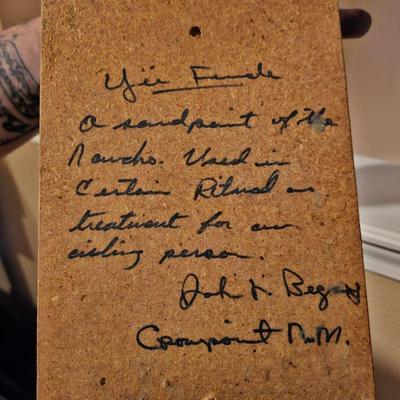 Yii Female
A sandpaint of the
Navaho. Used in
Certain Ritual as
treatment for an
ailing person.
John L. Begay
Crownpoint N.M.